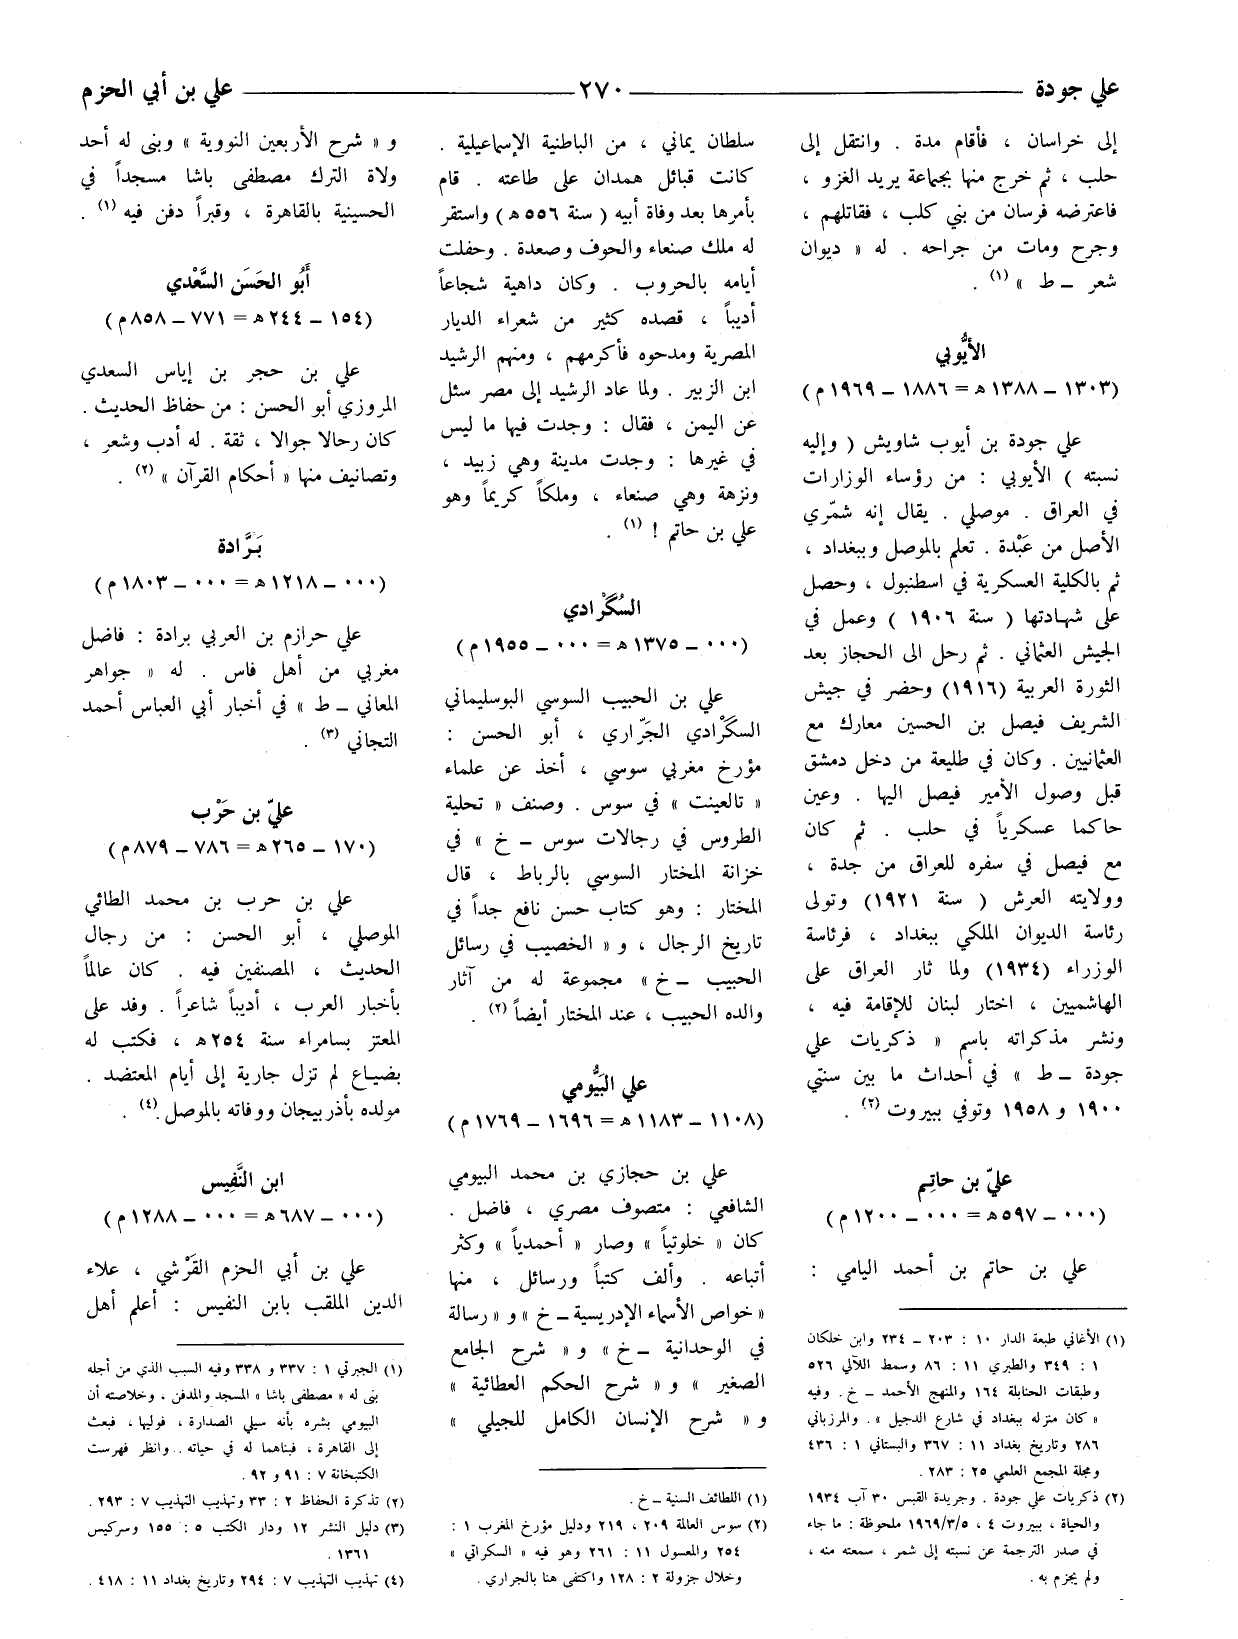 علي جودة ـــــ ٢٧٠ ـــــ علي بن أبي الحزم
إلى خراسان ، فأقام مدة . وانتقل إلى
حلب ، ثم خرج منها بجماعة يريد الغزو ،
فاعترضه فرسان من بني كلب ، فقاتلهم ،
وجرح ومات من جراحه . له « ديوان
شعر ـ ط » (١) .
الأيُّوبي
(١٣٠٣ ـ ١٣٨٨ هـ = ١٨٨٦ ـ ١٩٦٩ م)
علي جودة بن أيوب شاويش ( وإليه
نسبته ) الأيوبي : من رؤساء الوزارات
في العراق . موصلي . يقال إنه شمّري
الأصل من عَبْدة . تعلم بالموصل وببغداد ،
ثم بالكلية العسكرية في اسطنبول ، وحصل
على شهادتها ( سنة ١٩٠٦ ) وعمل في
الجيش العثماني . ثم رحل الى الحجاز بعد
الثورة العربية (١٩١٦) وحضر في جيش
الشريف فيصل بن الحسين معارك مع
العثمانيين . وكان في طليعة من دخل دمشق
قبل وصول الأمير فيصل اليها . وعين
حاكما عسكرياً في حلب . ثم كان
مع فيصل في سفره للعراق من جدة ،
وولايته العرش ( سنة ١٩٢١) وتولى
رئاسة الديوان الملكي ببغداد ، فرئاسة
الوزراء (١٩٣٤) ولما ثار العراق على
الهاشميين ، اختار لبنان للإقامة فيه ،
ونشر مذكراته باسم « ذكريات علي
جودة ـ ط » في أحداث ما بين سنتي
١٩٠٠ و ١٩٥٨ وتوفي ببيروت (٢) .
عليّ بن حاتِم
(٠٠٠ ـ ٥٩٧ هـ = ٠٠٠ ـ ١٢٠٠ م)
علي بن حاتم بن أحمد اليامي :
(١) الأغاني طبعة الدار ١٠ : ٢٠٣ ـ ٢٣٤ وابن خلكان
١ : ٣٤٩ والطبري ١١ : ٨٦ وسمط اللآلي ٥٢٦
وطبقات الحنابلة ١٦٤ والمنهج الأحمد ـ خ . وفيه
« كان منزله ببغداد في شارع الدجيل » . والمرزباني
٢٨٦ وتاريخ بغداد ١١ : ٣٦٧ والبستاني ١ : ٤٣٦
ومجلة المجمع العلمي ٢٥ : ٢٨٣ .
(٢) ذكريات علي جودة . وجريدة القبس ٣٠ آب ١٩٣٤
والحياة ، ببيروت ٤ ، ١٩٦٩/٣/٥ ملحوظة : ما جاء
في صدر الترجمة عن نسبته إلى شمر ، سمعته منه ،
ولم يجزم به .
سلطان يماني ، من الباطنية الإسماعيلية .
كانت قبائل همدان على طاعته . قام
بأمرها بعد وفاة أبيه ( سنة ٥٥٦ هـ ) واستقر
له ملك صنعاء والجوف وصعدة . وحفلت
أيامه بالحروب . وكان داهية شجاعاً
أديباً ، قصده كثير من شعراء الديار
المصرية ومدحوه فأكرمهم ، ومنهم الرشيد
ابن الزبير . ولما عاد الرشيد إلى مصر سئل
عن اليمن ، فقال : وجدت فيها ما ليس
في غيرها : وجدت مدينة وهي زبيد ،
ونزهة وهي صنعاء ، وملكاً كريماً وهو
علي بن حاتم ! (١) .
السُكْرَادي
(٠٠٠ ـ ١٣٧٥ هـ = ٠٠٠ ـ ١٩٥٥ م)
علي بن الحبيب السوسي البوسليماني
السكْرَادي الجَرّاري ، أبو الحسن :
مؤرخ مغربي سوسي ، أخذ عن علماء
« تالعينت » في سوس . وصنف « تحلية
الطروس في رجالات سوس ـ خ » في
خزانة المختار السوسي بالرباط ، قال
المختار : وهو كتاب حسن نافع جداً في
تاريخ الرجال ، و « الخصيب في رسائل
الحبيب ـ خ » مجموعة له من آثار
والده الحبيب ، عند المختار أيضاً (٢) .
علي البَيُّومي
(١١٠٨ ـ ١١٨٣ هـ = ١٦٩٦ ـ ١٧٦٩ م)
علي بن حجازي بن محمد البيومي
الشافعي : متصوف مصري ، فاضل .
كان « خلوتياً » وصار « أحمدياً » وكثر
أتباعه . وألف كتباً ورسائل ، منها
« خواص الأسماء الإدريسية ـ خ » و « رسالة
في الوحدانية ـ خ » و « شرح الجامع
الصغير » و « شرح الحكم العطائية »
و « شرح الإنسان الكامل للجيلي »
(١) اللطائف السنية ـ خ .
(٢) سوس العالمة ٢٠٩ ، ٢١٩ ودليل مؤرخ المغرب ١ :
٢٥٤ والمعسول ١١ : ٢٦١ وهو فيه « السكراتي »
وخلال جزولة ٢ : ١٢٨ واكتفى هنا بالجراري .
و « شرح الأربعين النووية » وبنى له أحد
ولاة الترك مصطفى باشا مسجداً في
الحسينية بالقاهرة ، وقبراً دفن فيه (١) .
أَبُو الحَسَن السَّعْدي
(١٥٤ ـ ٢٤٤ هـ = ٧٧١ ـ ٨٥٨ م)
علي بن حجر بن إياس السعدي
المروزي أبو الحسن : من حفاظ الحديث .
كان رحالا جوالا ، ثقة . له أدب وشعر ،
وتصانيف منها « أحكام القرآن » (٢) .
بَرَّادة
(٠٠٠ ـ ١٢١٨ هـ = ٠٠٠ ـ ١٨٠٣ م)
علي حرازم بن العربي برادة : فاضل
مغربي من أهل فاس . له « جواهر
المعاني ـ ط » في أخبار أبي العباس أحمد
التجاني (٣) .
عليّ بن حَرْب
(١٧٠ ـ ٢٦٥ هـ = ٧٨٦ ـ ٨٧٩ م)
علي بن حرب بن محمد الطائي
الموصلي ، أبو الحسن : من رجال
الحديث ، المصنفين فيه . كان عالماً
بأخبار العرب ، أديباً شاعراً . وفد على
المعتز بسامراء سنة ٢٥٤ هـ ، فكتب له
بضياع لم تزل جارية إلى أيام المعتضد .
مولده بأذربيجان ووفاته بالموصل (٤) .
ابن النَّفِيس
(٠٠٠ ـ ٦٨٧ هـ = ٠٠٠ ـ ١٢٨٨ م)
علي بن أبي الحزم القَرْشي ، علاء
الدين الملقب بابن النفيس : أعلم أهل
(١) الجبرتي ١ : ٣٣٧ و ٣٣٨ وفيه السبب الذي من أجله
بنى له « مصطفى باشا » المسجد والمدفن ، وخلاصته أن
البيومي بشره بأنه سيلي الصدارة ، فوليها ، فبعث
إلى القاهرة ، فبناهما له في حياته . وانظر فهرست
الكتبخانة ٧ : ٩١ و ٩٢ .
(٢) تذكرة الحفاظ ٢ : ٣٣ وتهذيب التهذيب ٧ : ٢٩٣ .
(٣) دليل النشر ١٢ ودار الكتب ٥ : ١٥٥ وسركيس
١٣٦١ .
(٤) تهذيب التهذيب ٧ : ٢٩٤ وتاريخ بغداد ١١ : ٤١٨ .